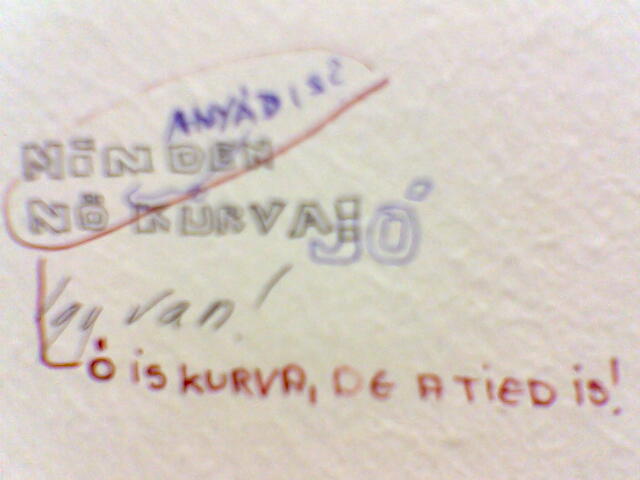 ANYÁD IS?
MINDEN
NŐ KURVA!
JÓ
Így van!
Ő IS KURVA, DE A TIED IS!